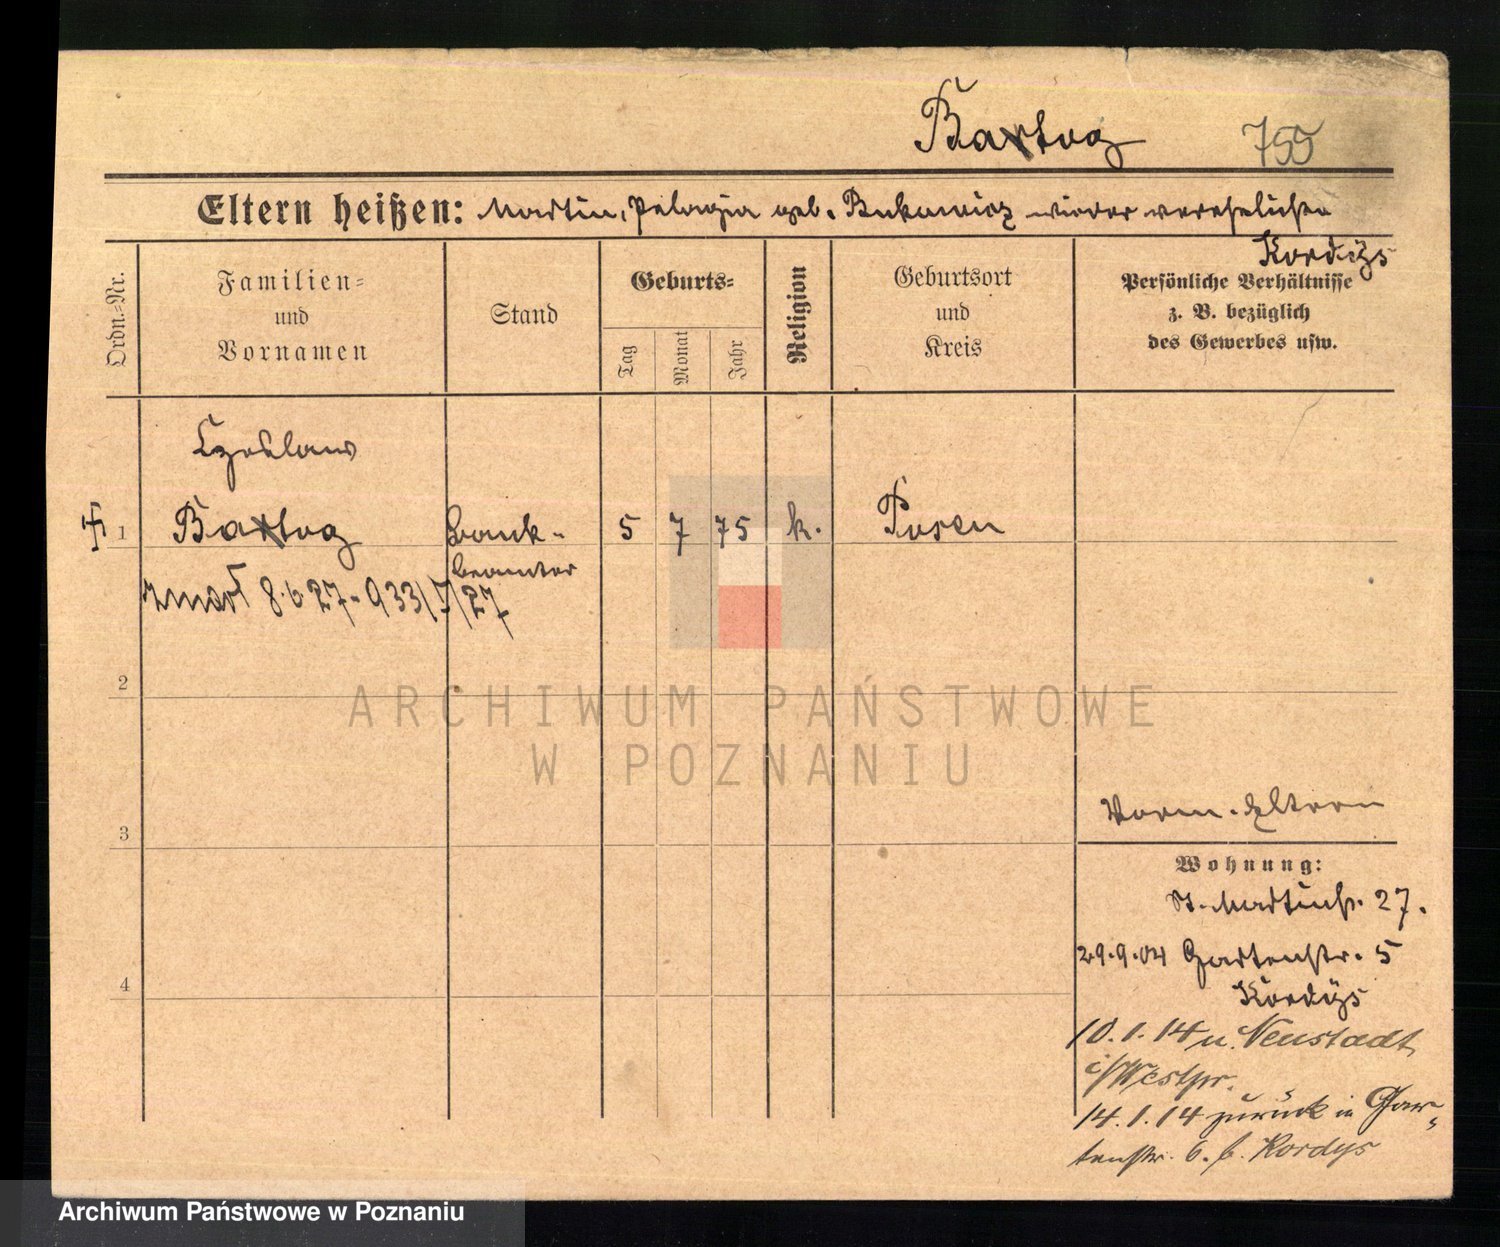 Bartog 755
Eltern heißen: Martin, Pelagia geb. Bukowicz wieder verehelichte
Kordÿs
Ordn.-Nr.
Familien-
und
Vornamen
Stand
Geburts-
Tag
Monat
Jahr
Religion
Geburtsort
und
Kreis
Persönliche Verhältnisse
z. B. bezüglich
des Gewerbes usw.
Czeslaw
1 Bartog Bank- 5 7 75 k. Posen
beamter
zmarł 8.6 27 - 933/V/27
2
ARCHIWUM PAŃSTWOWE
W POZNANIU
3
Vorm. Eltern
Wohnung:
St. Martinstr. 27.
4
29.9.04 Gartenstr. 5
Kordÿs
10.1.14 n. Neustadt
i/Westpr.
14.1.14 zurück in Gar-
tenstr. 6. b. Kordys
Archiwum Państwowe w Poznaniu